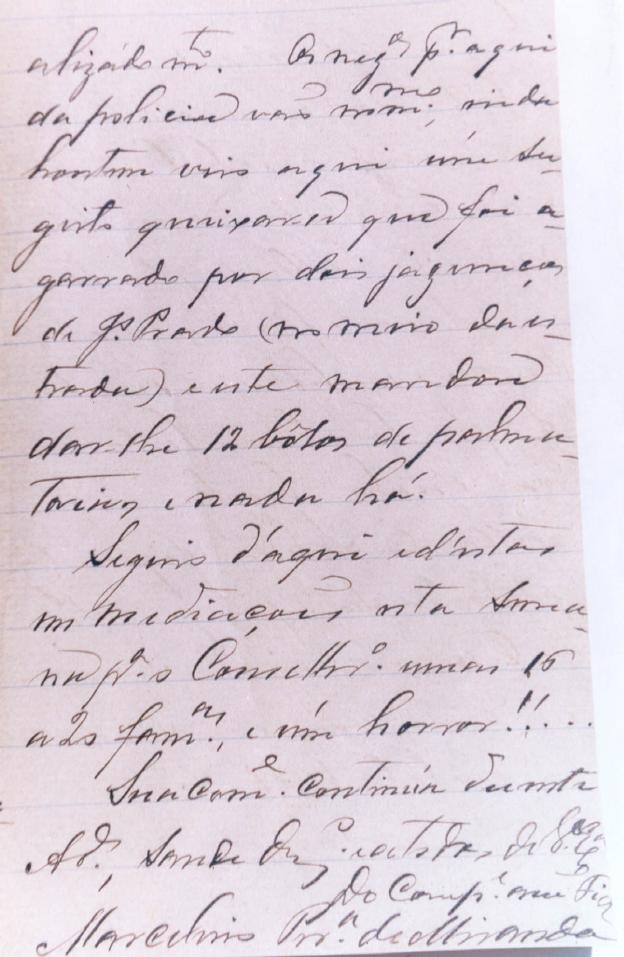 alizádo m.to. Os neg.os p.r aqui
da policia vão no m.mo; inda
hontem veio aqui um su-
geito queixar-se que foi a-
garrado por dois jagunços
de J.s Prado (no meio da es-
trada) e este mandou
dar-lhe 12 bôlos de palma-
torias, e nada há.
Seguio d'aqui e d'estas
immediações esta sema-
na p.a o Conselhr.o umas 16
a 20 fam.as, é um horror!!...
Sua com.e continúa doente
Ad.s, Saude
Do Comp.e am.o
Marcelino Pr.a de Miranda